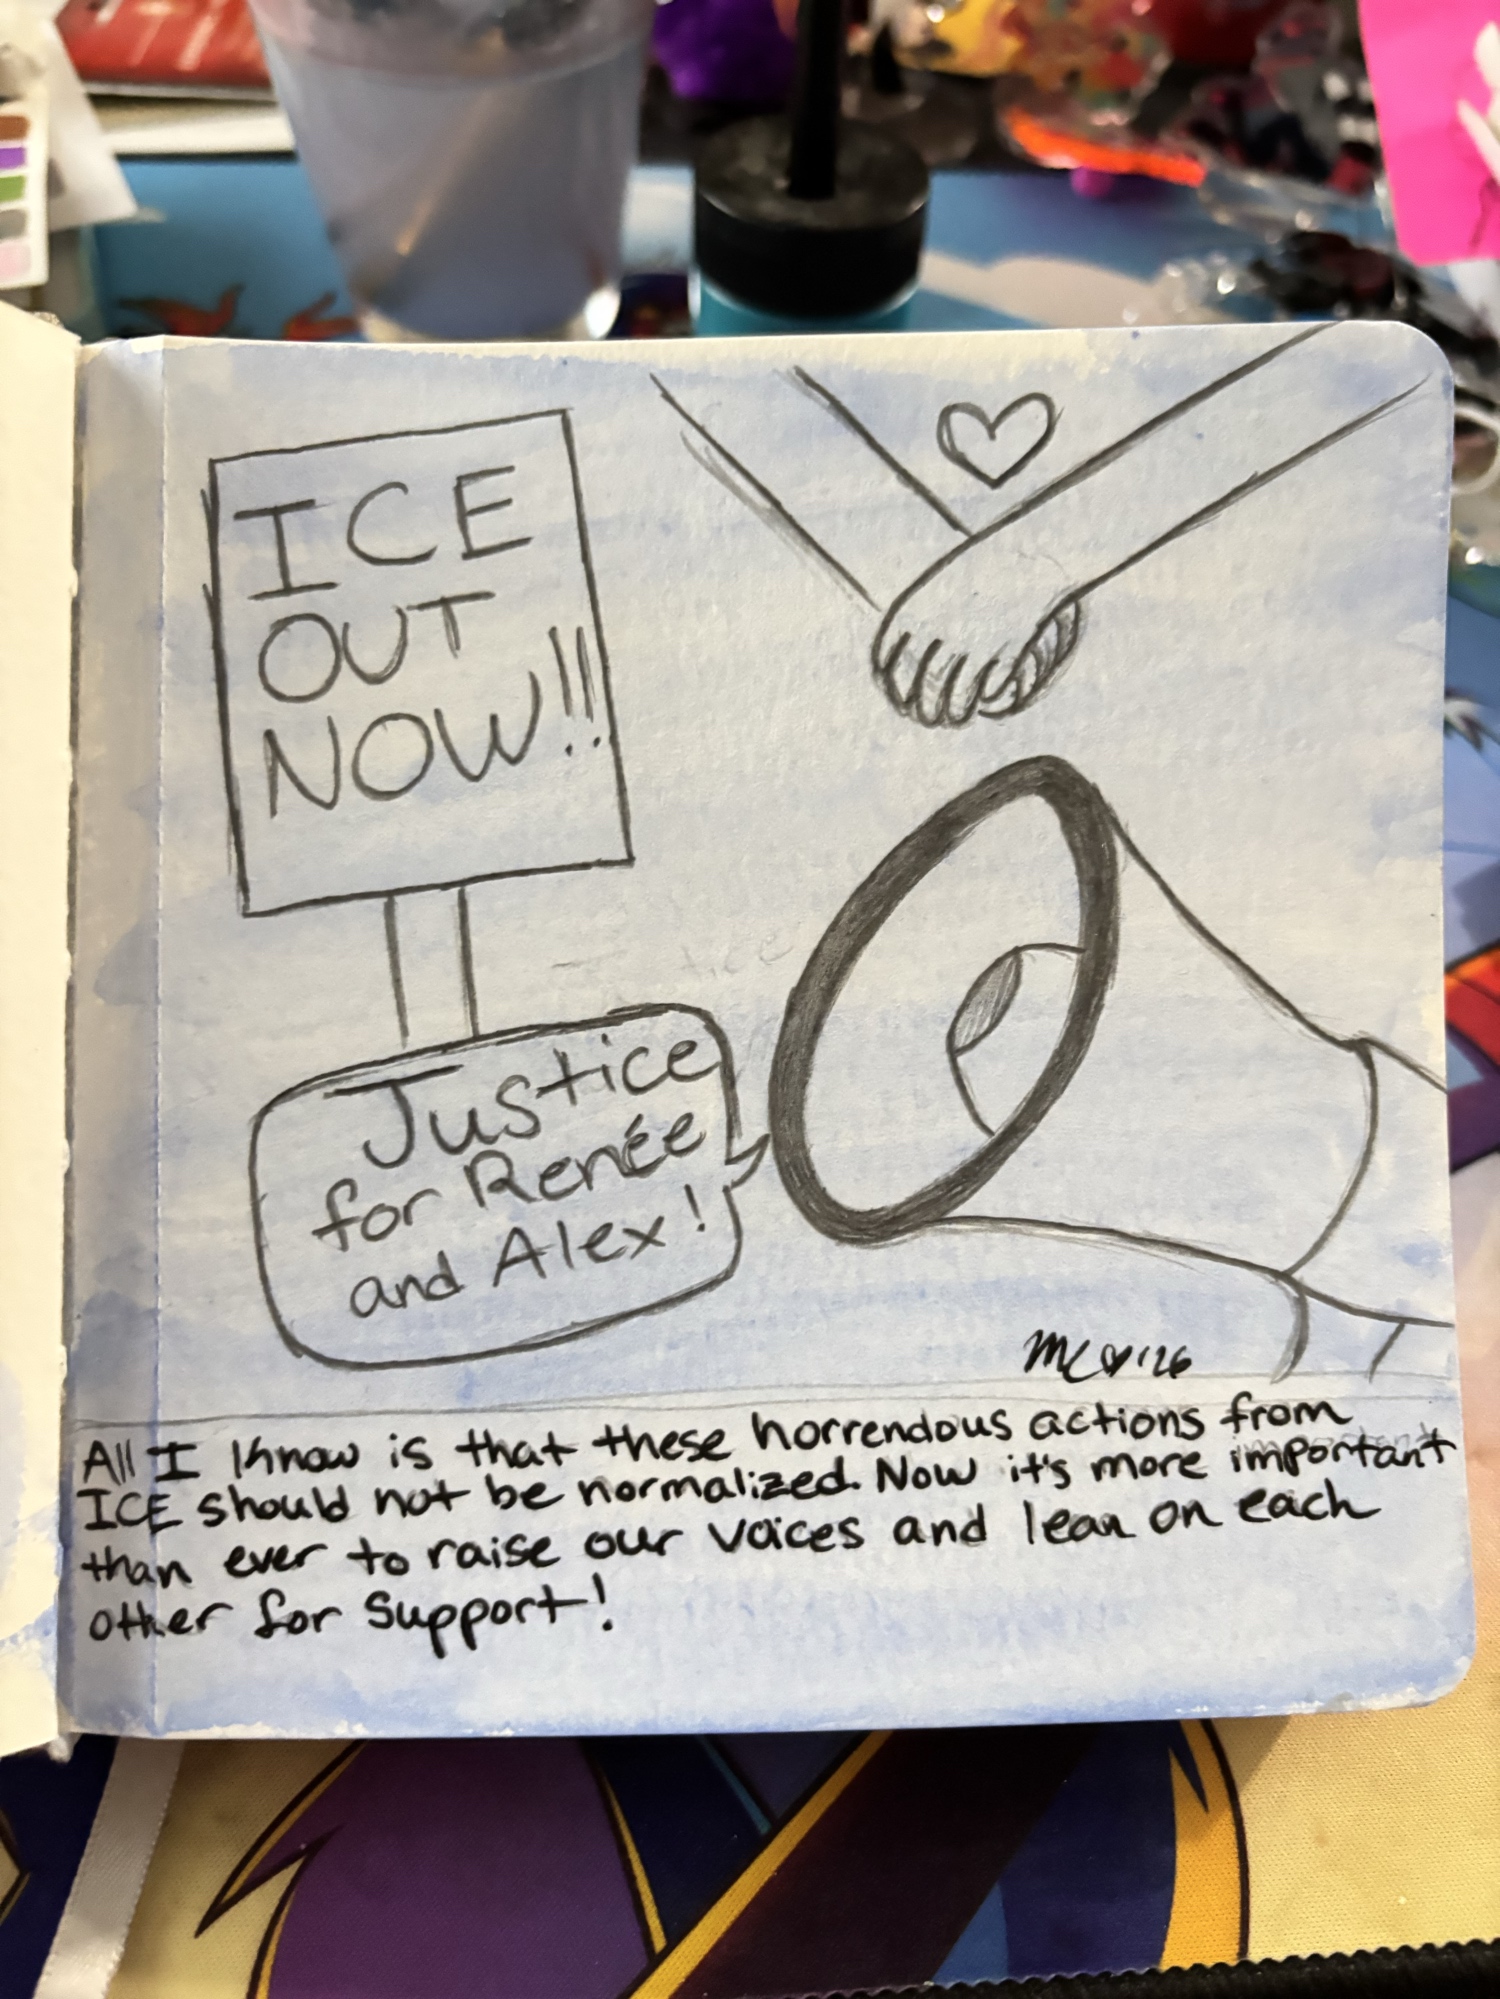 ICE
OUT
NOW!!
Justice
for Renée
and Alex!
MC♡'26
All I know is that these horrendous actions from
ICE should not be normalized. Now it's more important
than ever to raise our voices and lean on each
other for support!